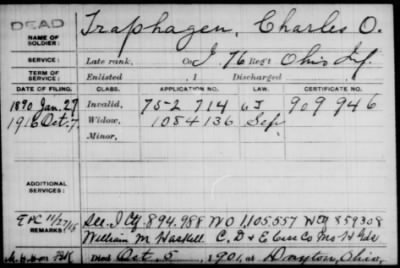 DEAD
Traphagen, Charles O.
NAME OF SOLDIER:
SERVICE: Late rank, Co I, 76 Reg't Ohio Inf.
TERM OF SERVICE: Enlisted , 1 Discharged , 1
DATE OF FILING. CLASS. APPLICATION NO. LAW. CERTIFICATE NO.
1890 Jan. 27 Invalid, 752 714 909 946
1916 Oct. 7. Widow, 1084136
Minor,
ADDITIONAL SERVICES:
REMARKS: 894.988 WO 1105.557 859308
William M Haskell C, D & E
Died Oct. 5, 1901, at Dayton, Ohio,